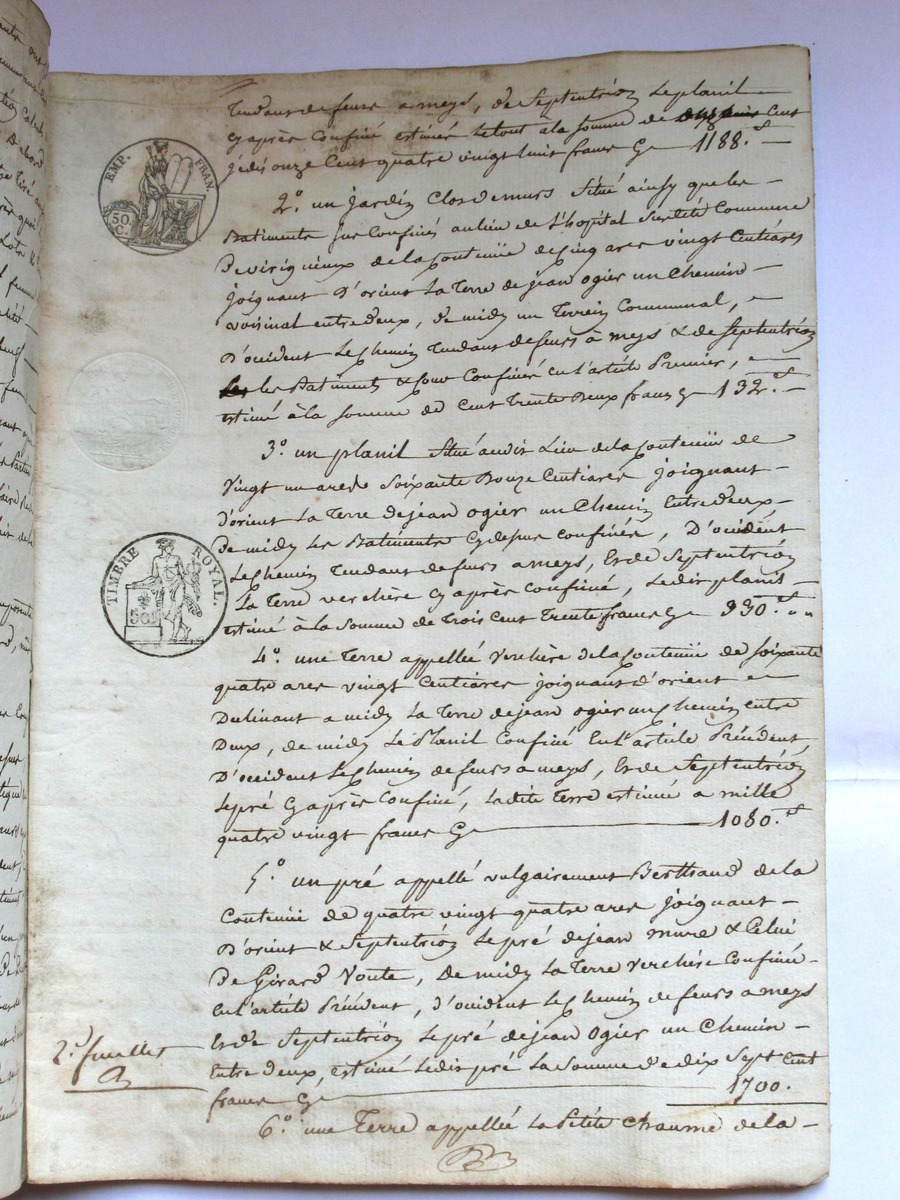 EMP. FRAN.
50 C.
TIMBRE ROYAL.
50
tendant de feurs a meys, de Septentrión le planil
cy après Confiné estimés le tout à la somme de Cent
je dis onze Cent quatre vingt huit francs Cy 1188.f
2.o un jardin Clos de murs Situé ainsy que les
Batiments sus Confinés au lieu de L'hopital Sus dite Commune
De virignieux de la Contenüe de Cinq ares vingt Centiares
joignant D'orient La Terre de jean ogier un Chemin
voisinal entre deux, de midy un Terrein Communal,
D'occident Le Chemin Tendant de feurs à meys & de Septentrión
les Batiments Confinés en l'article Premier,
estimé à la somme de Cent Trente Deux francs Cy 132.f
3.o un planil Situé audit Lieu de la Contenüe de
Vingt un ares Soixante Douze Centiares joignant
D'orient La Terre de jean ogier un Chemin Entre deux,
De midy les Batiments Cy depuis Confinés, D'occident
Le Chemin Tendant de feurs a meys, Et de Septentrión
La Terre verchère Cy après Confiné, Le dit planil
estimé à la Somme de Trois Cent Trente francs Cy 330.f
4.o une Terre appellée Verchère de la Contenüe de Soixante
quatre ares vingt Centiares joignant d'orient
Declinant a midy La Terre de jean ogier un Chemin entre
Deux, de midy Le Planil Confiné En l'article Précédent
D'occident Le Chemin de feurs a meys, Et de Septentrión
Le pré Cy après Confiné, Ladite Terre estimée a mille
quatre vingt francs Cy 1080.f
5.o un pré appellé vulgairement Berthaud de la
Contenüe de quatre vingt quatre ares joignant
D'orient & Septentrión Le pré de jean mure & Celui
De Girard Voute, de midy La Terre verchère Confiné
en l'article Précédent, d'occident Le Chemin de feurs a meys
Et de Septentrión Le pré de jean Ogier un Chemin
Entre deux, estimé Le dit pré La Somme de dix Sept Cent
francs Cy 1700.
2.e feuillet
6.o une Terre appellée La Petite Chaume de la